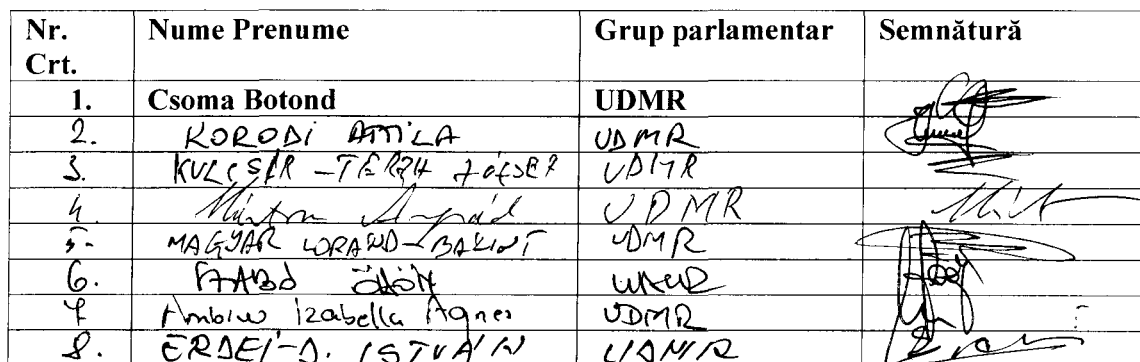 Nr. Crt. Nume Prenume Grup parlamentar Semnătură
1. Csoma Botond UDMR
2. KORODI ATTILA UDMR
3. KULCSÁR-TERZA JÓZSEF UDMR
4. Márton Árpád UDMR
5. MAGYAR LORAND-BALINT UDMR
6. SZABÓ ÖDÖN UDMR
7 Ambrus Izabella Agnes UDMR
8. ERDEI-D. ISTVÁN UDMR